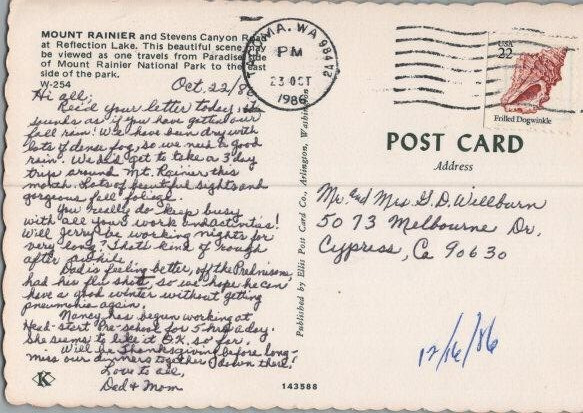 MOUNT RAINIER and Stevens Canyon Road
at Reflection Lake. This beautiful scene may
be viewed as one travels from Paradise side
of Mount Rainier National Park to the east
side of the park.
W-254
Oct. 22/86
Hi all;
Rec'd your letter today, it
sounds as if you have gotten our
fall rain! We have been dry with
lots of dense fog, so we need a good
rain. We did get to take a 3 day
trip around Mt. Rainier this
month. Lots of beautiful sights and
gorgeous fall foliage.
You really do keep busy
with all your work and activities!
Will Jerry be working nights for
very long? That's kind of rough
after awhile.
Dad is feeling better, off the Prednisone,
had his flu shot, so we hope he can
have a good winter without getting
pneumonia again.
Nancy has begun working at
Head-start Pre-school for 5 hrs a day.
She seems to like it O.K. so far.
Will be Thanksgiving before long-
miss our dinners together down there!
Love to all,
Dad & Mom
K
143588
Published by Ellis Post Card Co., Arlington, Washington
TACOMA, WA 984
PM
23 OCT
1986
USA
22
Frilled Dogwinkle
POST CARD
Address
Mr. and Mrs G. D. Willburn
5073 Melbourne Dr.
Cypress, Ca 90630
12/16/86